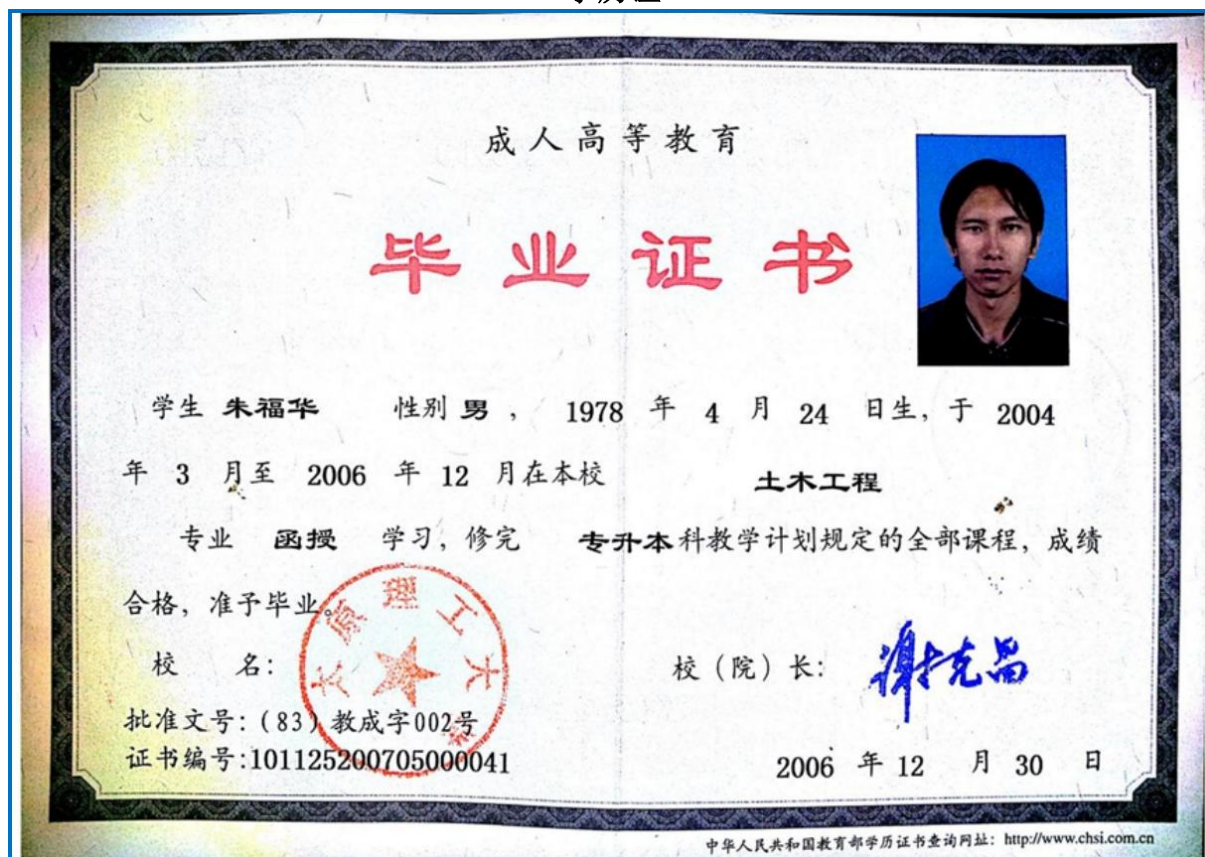 成人高等教育
毕业证书
学生 朱福华 性别 男 , 1978 年 4 月 24 日生, 于 2004
年 3 月至 2006 年 12 月在本校 土木工程
专业 函授 学习, 修完 专升本科教学计划规定的全部课程, 成绩
合格, 准予毕业。
太原理工大学
校 名: 校 (院) 长: 谢克昌
批准文号: (83) 教成字002号
证书编号:101125200705000041 2006 年 12 月 30 日
中华人民共和国教育部学历证书查询网址: http://www.chsi.com.cn